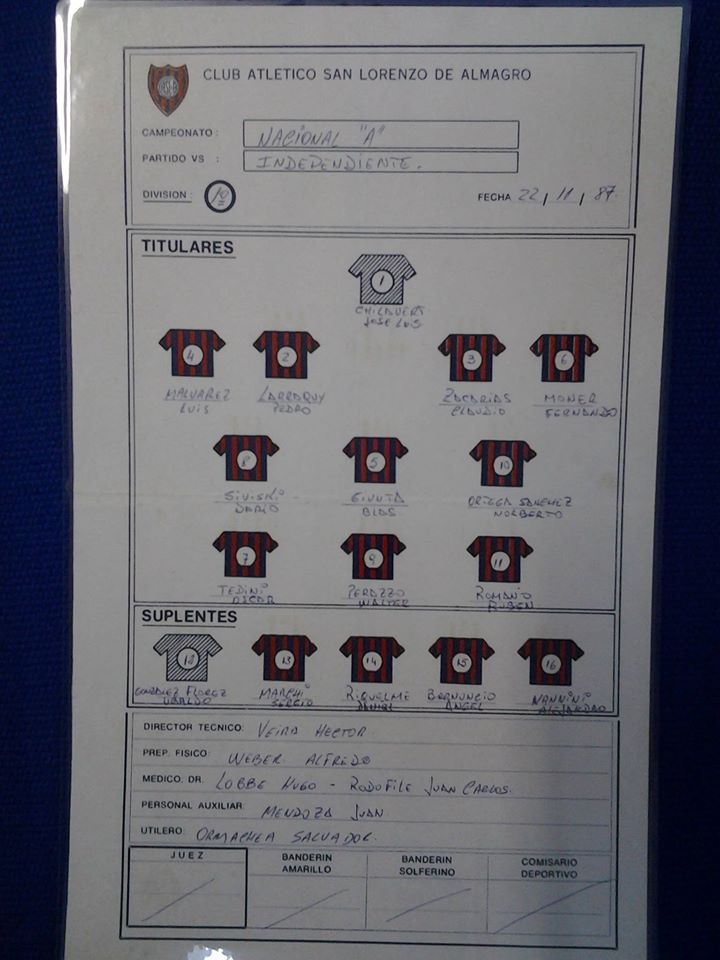 CLUB ATLETICO SAN LORENZO DE ALMAGRO
CAMPEONATO : NACIONAL "A"
PARTIDO VS : INDEPENDIENTE.
DIVISION : 1º
FECHA 22 / 11 / 87
TITULARES
1
CHILAVERT
JOSE LUIS
4 2 3 6
MALVAREZ LARRAQUY ZACARIAS MONER
LUIS PEDRO CLAUDIO FERNANDO
8 5 10
SIVISKI GIUNTA ORTEGA SANCHEZ
DARIO BLAS NORBERTO
7 9 11
TEDINI PERAZZO ROMANO
OSCAR WALTER RUBEN
SUPLENTES
12 13 14 15 16
GONZALEZ FLOREZ MARCHI RIQUELME BERNUNCIO NANNINI
UBALDO SERGIO DANIEL ANGEL ALEJANDRO
DIRECTOR TECNICO: VEIRA HECTOR
PREP. FISICO: WEBER ALFREDO
MEDICO. DR. LOBBE HUGO - RODOFILE JUAN CARLOS.
PERSONAL AUXILIAR: MENDOZA JUAN
UTILERO: ORMACHEA SALVADOR.
JUEZ BANDERIN BANDERIN COMISARIO
AMARILLO SOLFERINO DEPORTIVO